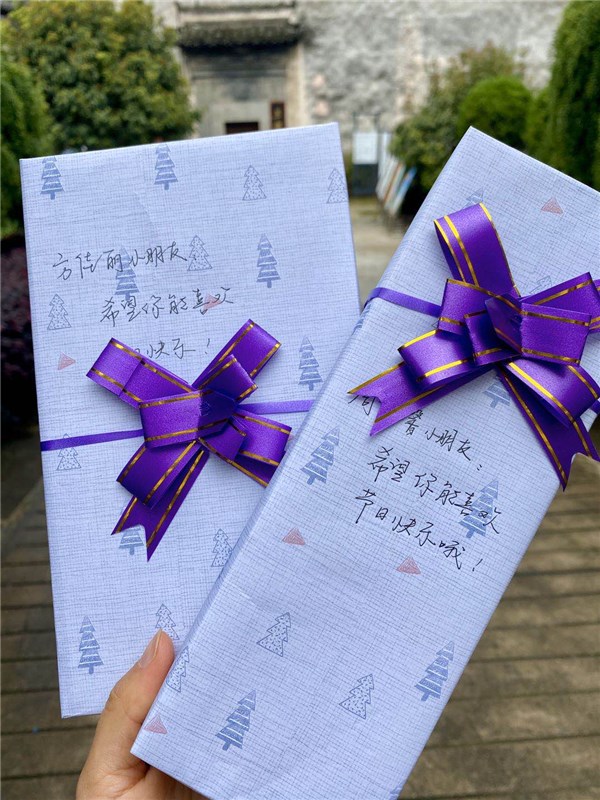 方佳丽小朋友
希望你能喜欢
日快乐！
周 馨小朋友：
希望你能喜欢
节日快乐哦！